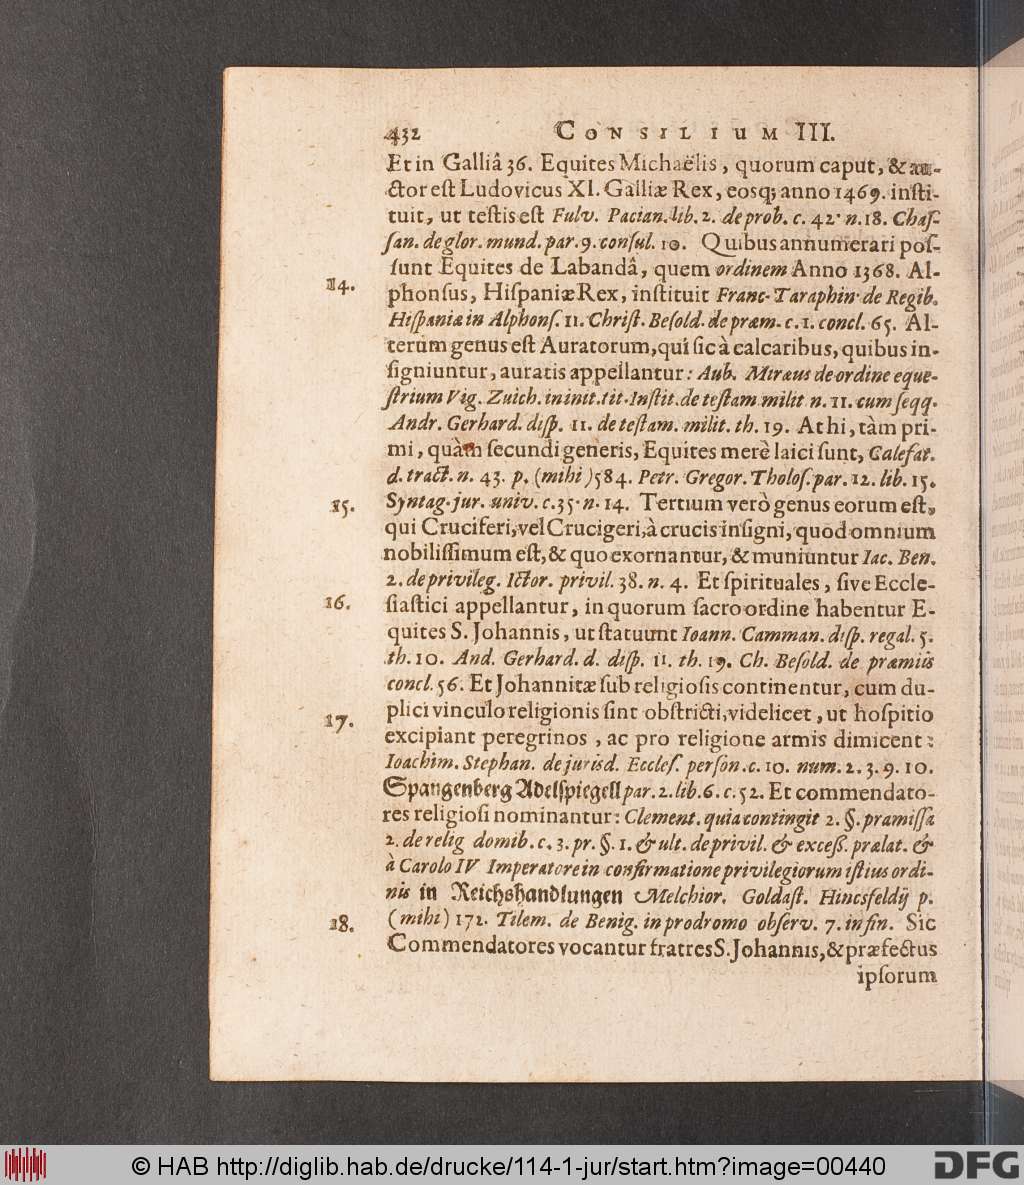 432 CONSILIUM III.
Et in Galliâ 36. Equites Michaëlis, quorum caput, & au-
ctor eſt Ludovicus XI. Galliæ Rex, eosq; anno 1469. inſti-
tuit, ut teſtis eſt Fulv. Pacian. lib. 2. de prob. c. 42. n. 18. Chaſ-
ſan. de glor. mund. par. 9. conſul. 10. Quibus annumerari poſ-
ſunt Equites de Labandâ, quem ordinem Anno 1368. Al-
14. phonſus, Hiſpaniæ Rex, inſtituit Franc. Taraphin. de Regib.
Hiſpania in Alphonſ. 11. Chriſt. Beſold. de præm. c. 1. concl. 65. Al-
terum genus eſt Auratorum, qui ſic à calcaribus, quibus in-
ſigniuntur, auratis appellantur: Aub. Miræus de ordine eque-
ſtrium Vig. Zuich. in init. tit. Inſtit. de teſtam milit n. 11. cum ſeqq.
Andr. Gerhard. diſp. 11. de teſtam. milit. th. 19. At hi, tàm pri-
mi, quàm ſecundi generis, Equites merè laici ſunt, Calefat.
d. tract. n. 43. p. (mihi) 584. Petr. Gregor. Tholoſ. par. 12. lib. 15.
15. Syntag. jur. univ. c. 35. n. 14. Tertium verò genus eorum eſt,
qui Cruciferi, vel Crucigeri, à crucis inſigni, quod omnium
nobiliſſimum eſt, & quo exornantur, & muniuntur Iac. Ben.
2. de privileg. Ictor. privil. 38. n. 4. Et ſpirituales, ſive Eccle-
16. ſiaſtici appellantur, in quorum ſacro ordine habentur E-
quites S. Johannis, ut ſtatuunt Ioann. Camman. diſp. regal. 5.
th. 10. And. Gerhard. d. diſp. 11. th. 19. Ch. Beſold. de præmiis
concl. 56. Et Johannitæ ſub religioſis continentur, cum du-
17. plici vinculo religionis ſint obſtricti, videlicet, ut hoſpitio
excipiant peregrinos, ac pro religione armis dimicent:
Ioachim. Stephan. de jurisd. Eccleſ. perſon. c. 10. num. 2. 3. 9. 10.
Spangenberg Adelſpiegell par. 2. lib. 6. c. 52. Et commendato-
res religioſi nominantur: Clement. quia contingit 2. §. præmiſſa
2. de relig domib. c. 3. pr. §. 1. & ult. de privil. & exceß. prælat. &
à Carolo IV Imperatore in confirmatione privilegiorum iſtius ordi-
nis in Reichshandlungen Melchior. Goldaſt. Hincsfeldij p.
18. (mihi) 172. Tilem. de Benig. in prodromo obſerv. 7. in fin. Sic
Commendatores vocantur fratres S. Johannis, & præfectus
ipſorum
© HAB http://diglib.hab.de/drucke/114-1-jur/start.htm?image=00440
DFG